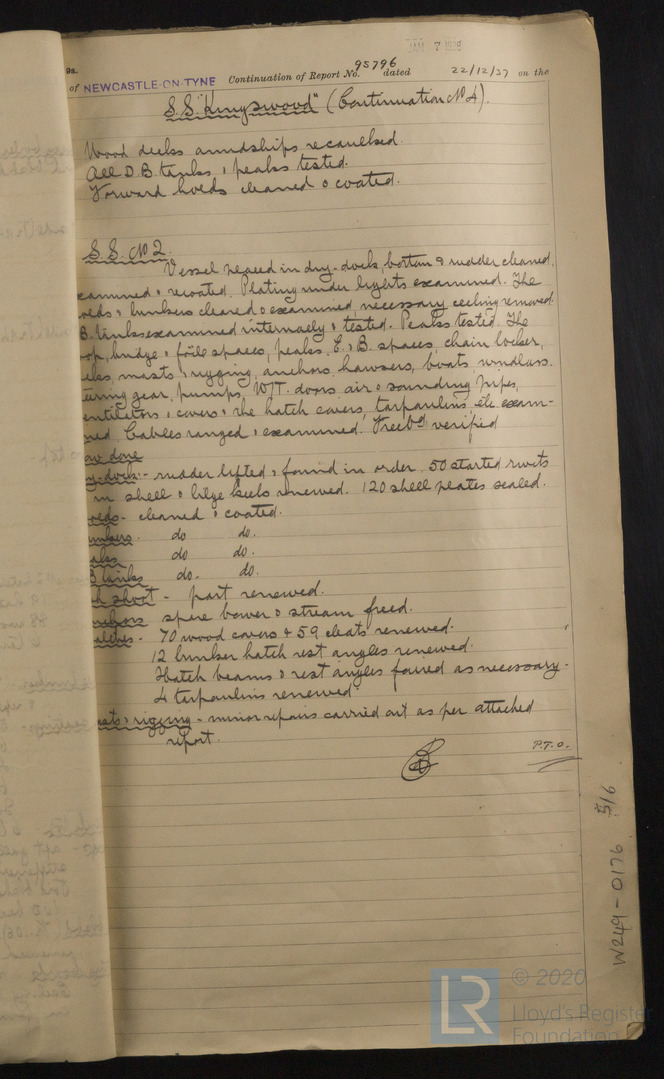 JAN 7 1938
9a.
of NEWCASTLE-ON-TYNE Continuation of Report No. 95796 dated 22/12/37 on the
S.S. "Kingswood" (Continuation No 4).
Wood decks amidships recaulked.
All D.B. tanks & peaks tested.
Forward holds cleaned & coated.
S.S. No 2.
Vessel placed in dry-dock, bottom & rudder cleaned,
examined & recoated. Plating under lights examined. The
holds & bunkers cleared & examined necessary ceiling removed.
B. tanks examined internally & tested. Peaks tested. The
oop, bridge & fo'cle spaces, peaks, E. & B. spaces, chain locker,
masts & rigging, anchors, hawsers, boats, windlass.
gear, pumps, W/T. doors, air & sounding pipes,
entilators & covers & the hatch covers, tarpaulins, etc exam-
ned. Cables ranged & examined. Freebd verified
ow done
y-dock:- rudder lifted & found in order. 50 started rivets
in shell & bilge keels renewed. 120 shell plates sealed.
olds - cleaned & coated.
unkers. do do.
eaks do do.
B tanks do. do.
part renewed.
nchors spare bower & stream freed.
atches - 70 wood covers & 59 cleats renewed.
12 bunker hatch rest angles renewed.
Hatch beams & rest angles faired as necessary.
4 tarpaulins renewed
asts & rigging - minor repairs carried out as per attached
report.
P.T.O.
W249-0176 5/6
LR © 2020
Lloyd's Register
Foundation